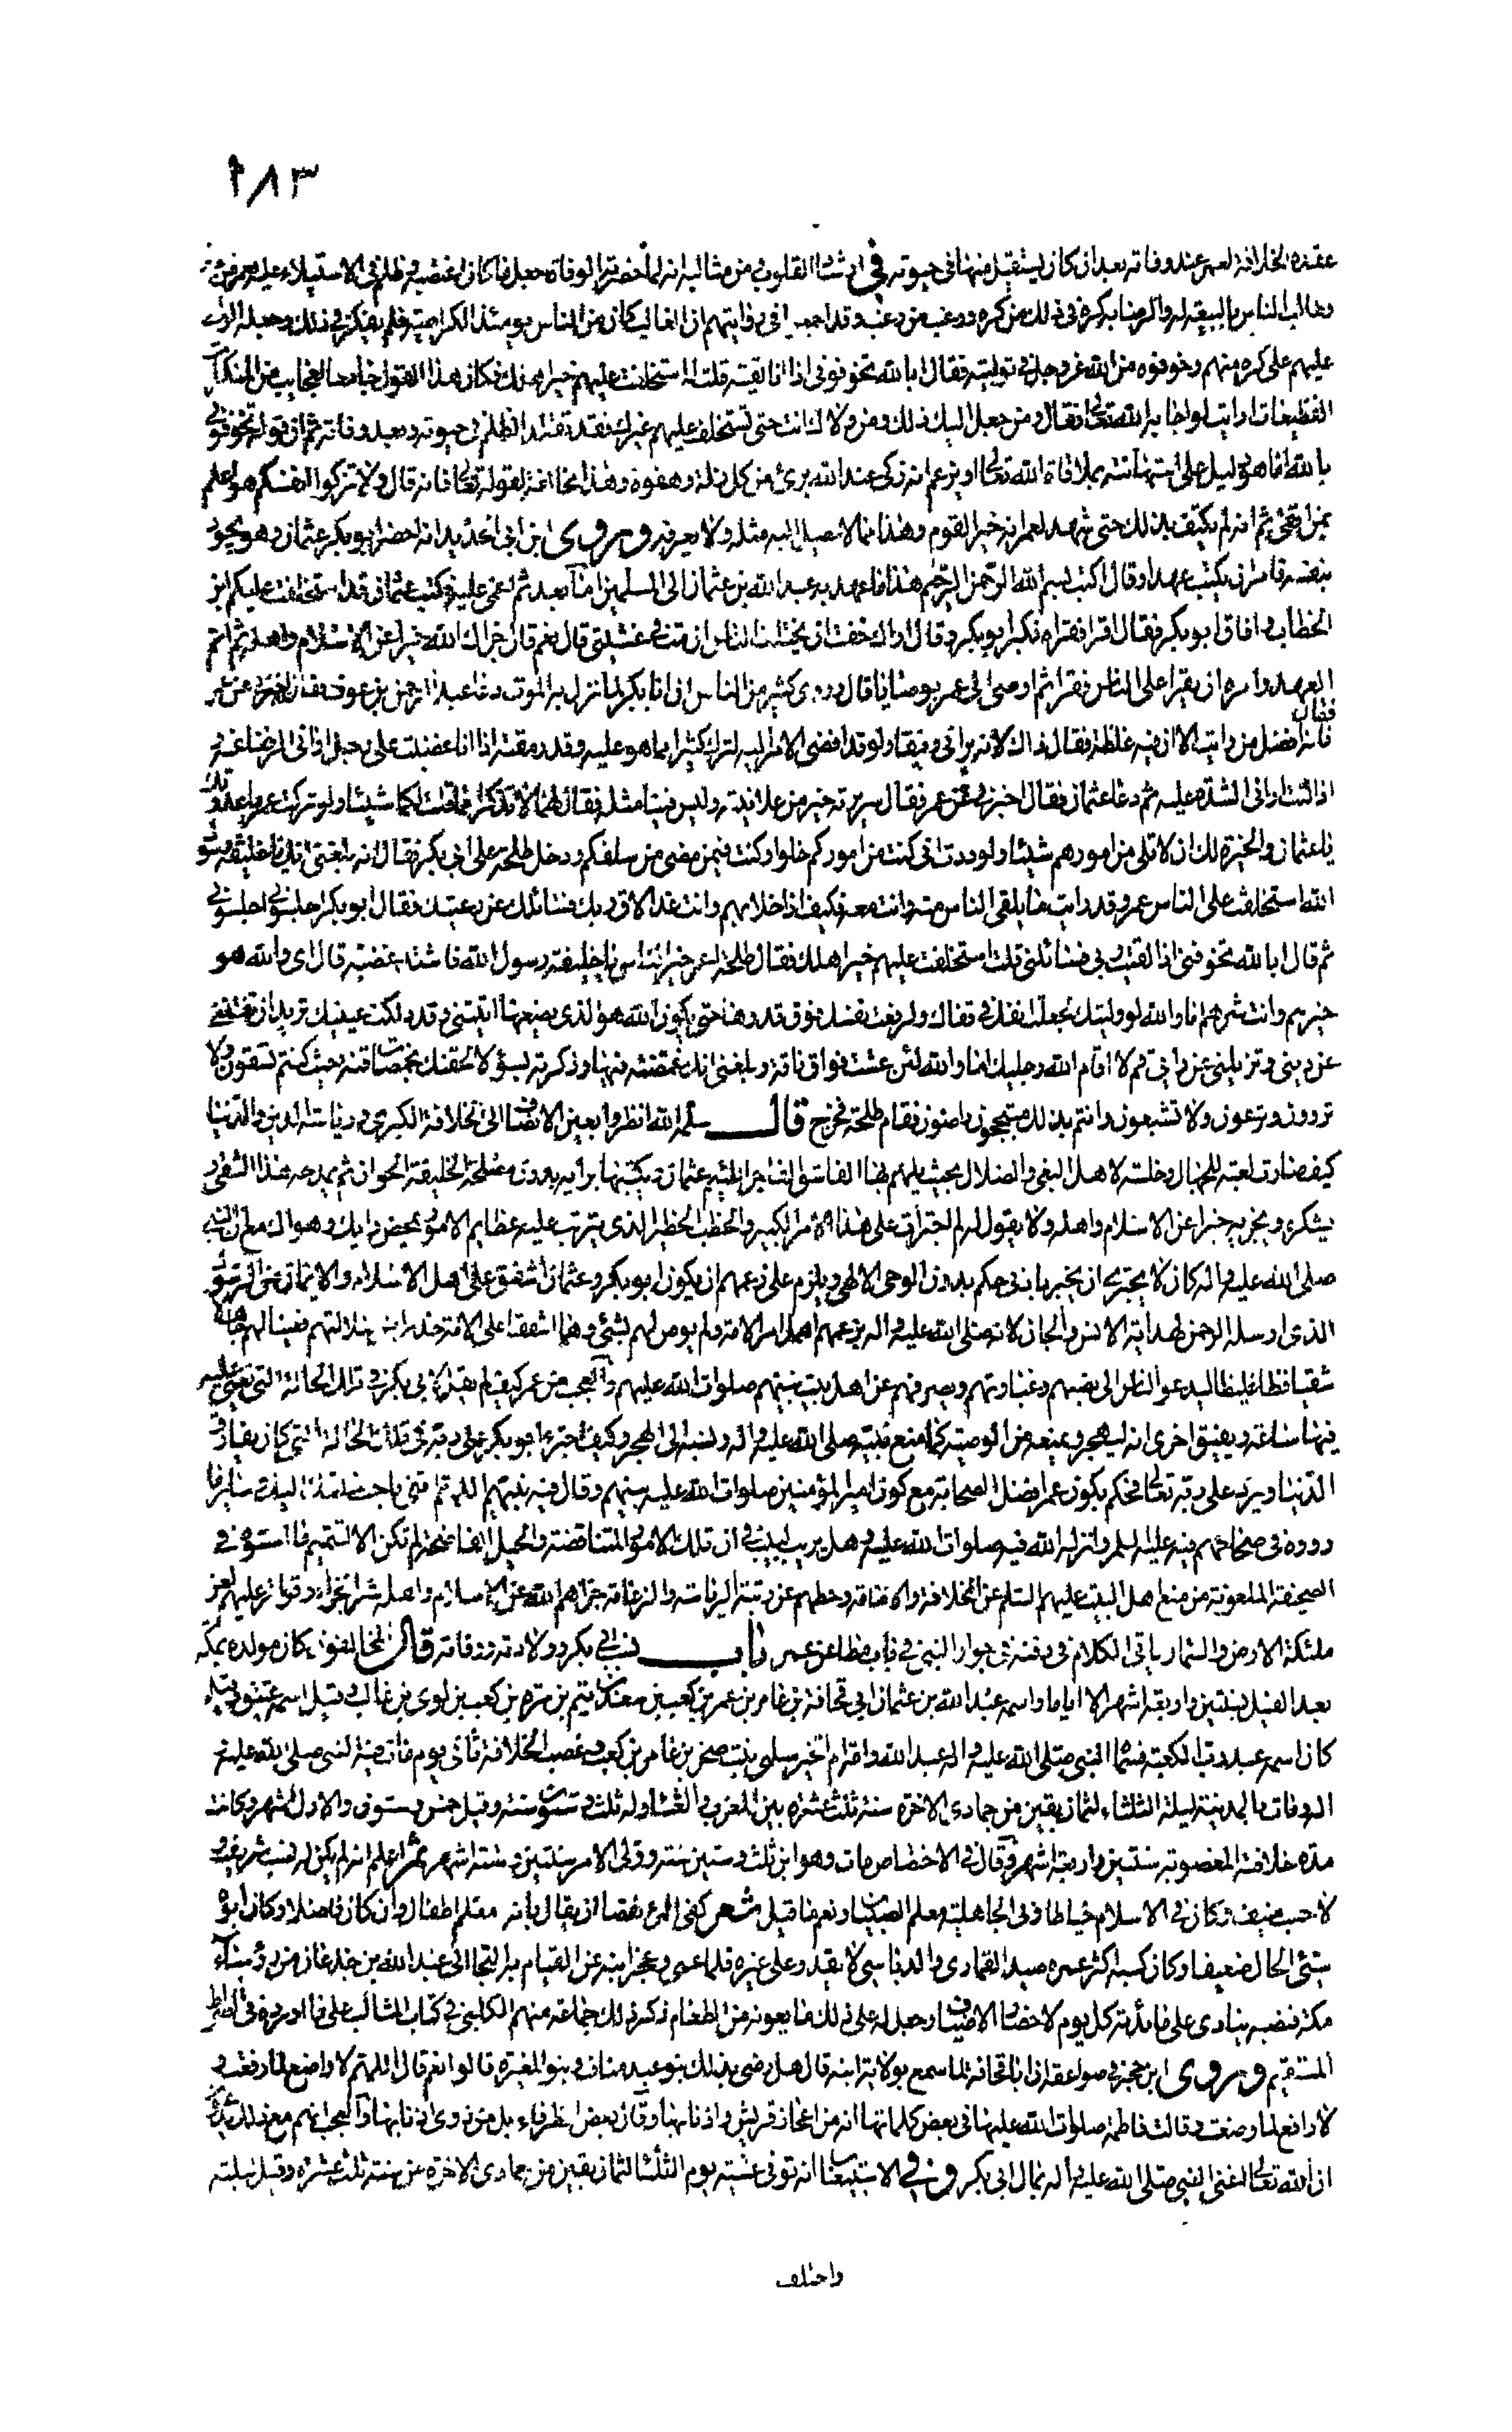 ٢٨٣
عقده الخلافة لعمر عند وفاته بعد ان كان يستقيل منها في حيوته في ارشاد القلوب من مثالبه انه لما حضرته الوفاة جعل ما كان اغتصبه وظلم في الاستيلاء عليه لعمر من بعده
وطالب الناس بالبيعة له والرضا به كره في ذلك من كره ورغب من رغب وقد اجمعوا في روايتهم ان الغالب كان من الناس يومئذ الكراهية فلم يفكر في ذلك وجعله الوالي
عليهم على كره منهم وخوفوه من الله عز وجل في توليته فقال ابالله تخوفوني اذا انا لقيته قلت له استخلفت عليهم خير اهلك فكان هذا القول جامعا لعجايب من المنكرات
الفظيعات ارايت لو اجابه الله تعالى فقال ومن جعل اليك ذلك ومن ولاك انت حتى تستخلف عليهم غيرك فقد تقلد الظلم في حيوته وبعد وفاته ثم ان قوله تخوفوني
بالله اما هو دليل على استهانته بملاقاة الله تعالى او يزعم انه زكى عند الله برئ من كل زلة وهفوة وهذا مخالفة لقوله تعالى فانه قال ولا تزكوا انفسكم هو اعلم
بمن اتقى ثم انه لم يكتف بذلك حتى شهد لعمر انه خير القوم وهذا مما لا يصل اليه مثله ولا يعرفه وروى ابن ابي الحديد انه احضر ابو بكر عثمان وهو يجود
بنفسه فامره ان يكتب عهدا وقال اكتب بسم الله الرحمن الرحيم هذا ما عهد به عبد الله بن عثمان الى المسلمين اما بعد ثم اغمى عليه وكتب عثمان قد استخلفت عليكم ابن
الخطاب وافاق ابو بكر فقال اقرا فقراه فكبر ابو بكر وقال اراك خفت ان يختلف الناس ان مت في غشيتي قال نعم قال جزاك الله خيرا عن الاسلام واهله ثم اتم
العهد وامره ان يقرا على الناس فقرا ثم اوصى الى عمر بوصايا قال وروى كثير من الناس ان ابا بكر لما نزل به الموت دعا عبد الرحمن بن عوف فقال اخبرني عن عمر
فقال انه افضل من رايت الا ان فيه غلظة فقال ذاك لانه يراني رقيقا ولو قد افضى الامر اليه لترك كثيرا مما هو عليه وقد رمقته اذا انا غضبت على رجل اراني الرضا عنه و
اذا لنت اراني الشدة عليه ثم دعا عثمان فقال اخبرني عن عمر فقال سريرته خير من علانيته وليس فينا مثله فقال لهما لا تذكرا مما قلت لكما شيئا ولو تركت عمر ما عدوتك
يا عثمان والخيرة لك ان لا تلى من امورهم شيئا ولوددت اني كنت من اموركم خلوا وكنت فيمن مضى من سلفكم ودخل طلحة على ابي بكر فقال انه بلغني انك يا خليفة رسول
الله استخلفت على الناس عمر وقد رايت ما يلقى الناس منه وانت معه فكيف اذا خلا بهم وانت غدا لاق ربك فسائلك عن رعيتك فقال ابو بكر اجلسوني اجلسوني
ثم قال ابالله تخوفني اذا لقيت ربي فسائلني قلت استخلفت عليهم خير اهلك فقال طلحة اعمر خير الناس يا خليفة رسول الله فاشتد غضبه قال اي والله هو
خيرهم وانت شرهم اما والله لو وليتك لجعلت انفك في قفاك ولرفعت نفسك فوق قدرها حتى يكون الله هو الذي يضعها اتيتني وقد دلكت عينيك تريد ان تفتنني
عن ديني وتزيلني عن رايي قم لا اقام الله رجليك اما والله لئن عشت فواق ناقة وبلغني انك غمصته فيها وذكرته بسوء لالحقنك بخمصات قنة حيث كنتم تسقون ولا
تروون وترعون ولا تشبعون وانتم بذلك مبتجحون راضون فقام طلحة فخرج قال سلمه الله انظروا بعين الانصاف الى الخلافة الكبرى ورياسة الدين والدنيا
كيف صارت لعبة للجهال وخلسة لاهل البغي والضلال بحيث يلهم بها الفاسق الفاجر اللئيم عثمان ويكتبها برايه بدون مصلحة الخليفة الخوان ثم يمدحه هذا الشقى و
يشكره ويجزيه خيرا عن الاسلام واهله ولا يقول له لم اجترات على هذا الامر الكبير والخطب الخطير الذي يترتب عليه عظايم الامور بمحض رايك وهواك مع ان النبي
صلى الله عليه واله كان لا يجترئ ان يخبر بادنى حكم بدون الوحى الالهى ويلزم على زعمهم ان يكون ابو بكر وعثمان اشفق على اهل الاسلام والايمان من الرسول
الذي ارسله الرحمن لهداية الانس والجان لانه صلى الله عليه واله بزعمهم اهمل امر الامة ولم يوص لهم بشئ وهما اشفقا على الامة حذرا من ضلالتهم فنصبا لهم جاهلا
شقيا فظا غليظا ليدعو الناس الى نصبهم وغباوتهم ويصرفهم عن اهل بيت نبيهم صلوات الله عليهم والعجب من عمر كيف لم يقل لابي بكر في تلك الحالة التي يغمى عليه
فيها ساعة ويفيق اخرى انه ليهجر ويمنعه من الوصية كما منع نبيه صلى الله عليه واله ونسبه الى الهجر وكيف اجترء ابو بكر على ربه في تلك الحالة التي كان يفارق
الدنيا ويرد على ربه تعالى فحكم بكون عمر افضل الصحابة مع كون امير المؤمنين صلوات الله عليه بينهم وقال فيه نبيهم اللهم ائتني باحب خلقك اليك وساير ما
رووه في صحاحهم فيه عليه السلم وانزله الله فيه صلوات الله عليه وهل يريب لبيب في ان تلك الامور المتناقضة والحيل الفاضحة لم تكن الا لتتميم ما اسسوه في
الصحيفة الملعونة من منع اهل البيت عليهم السلم عن الخلافة والامامة وحطهم عن رتبة الرياسة والزعامة جزاهم الله عن الاسلام واهله شر الجزاء وتواتر عليهم لعن
ملئكة الارض والسماء ياتي الكلام في دفنه في جوار النبي في باب مطاعن عمر باب نسب ابي بكر وولادته ووفاته قال المخالفون كان مولده بمكة
بعد الفيل بسنتين واربعة اشهر الا اياما واسمه عبد الله بن عثمان ابي قحافة بن عامر بن عمر بن كعب بن سعد بن تيم بن مرة بن كعب بن لوى بن غالب وقيل اسمه عتيق وقيل
كان اسمه عبد رب الكعبة فسماه النبي صلى الله عليه واله عبد الله وامه ام الخير سلمى بنت صخر بن عامر بن كعب وغصب الخلافة ثاني يوم مات فيه النبي صلى الله عليه و
اله ومات بالمدينة ليلة الثلثاء لثمان بقين من جمادى الاخرة سنة ثلث عشرة بين المغرب والعشاء وله ثلث وستون سنة وقيل خمس وستون والاول اشهر وكانت
مدة خلافته المغصوبة سنتين واربعة اشهر وقال في الاختصاص مات وهو ابن ثلث وستين سنة وولى الامر سنتين وستة اشهر ثم اعلم انه لم يكن له نسب شريف و
لا حسب منيف وكان في الاسلام خياطا وفي الجاهلية معلم الصبيان ونعم ما قيل شعر كفى المرء نقصا ان يقال بانه معلم اطفال وان كان فاضلا وكان ابوه
سيئ الحال ضعيفا وكان كسبه اكثر عمره صيد القمارى والدباسى لا يقدر على غيره فلما عمى وعجز ابنه عن القيام به التجا الى عبد الله بن جدعان من رؤساء
مكة فنصبه ينادى على مائدته كل يوم لاحضار الاضياف وجعل له على ذلك ما يعونه من الطعام ذكر ذلك جماعة منهم الكلبى في كتاب المثالب على ما اورده في الصراط
المستقيم وروى ابن حجر في صواعقه ان ابا قحافة لما سمع بولاية ابنه قال هل رضى بذلك بنو عبد مناف وبنو المغيرة قالوا نعم قال اللهم لا واضع لما رفعت و
لا رافع لما وضعت وقالت فاطمة صلوات الله عليها في بعض كلماتها انه من اعجاز قريش واذنابها وقال بعض الظرفاء بل من ذوى اذنابها والعجب انهم مع ذلك يدعون
ان الله تعالى اغنى النبي صلى الله عليه واله بمال ابي بكر وفي الاستيعاب انه توفى عشية يوم الثلثا لثمان بقين من جمادى الاخرة من سنة ثلث عشرة وقيل ليلته
واختلف